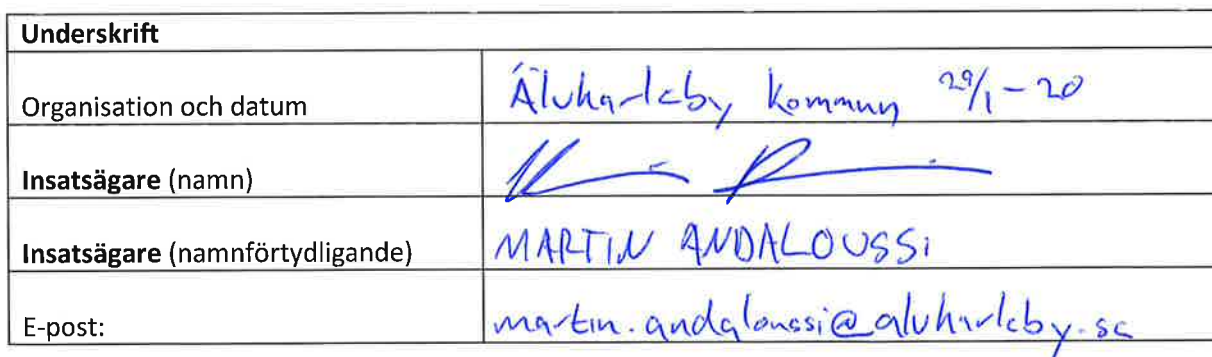 Underskrift
Organisation och datum Älvkarleby Kommun 29/1-20
Insatsägare (namn)
Insatsägare (namnförtydligande) MARTIN ANDALOUSSI
E-post: martin.andaloussi@alvkarleby.se